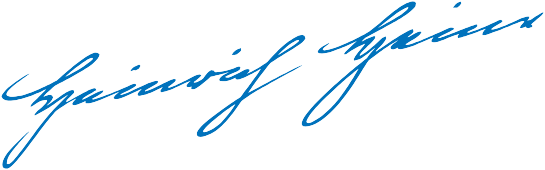 Heinrich Heine